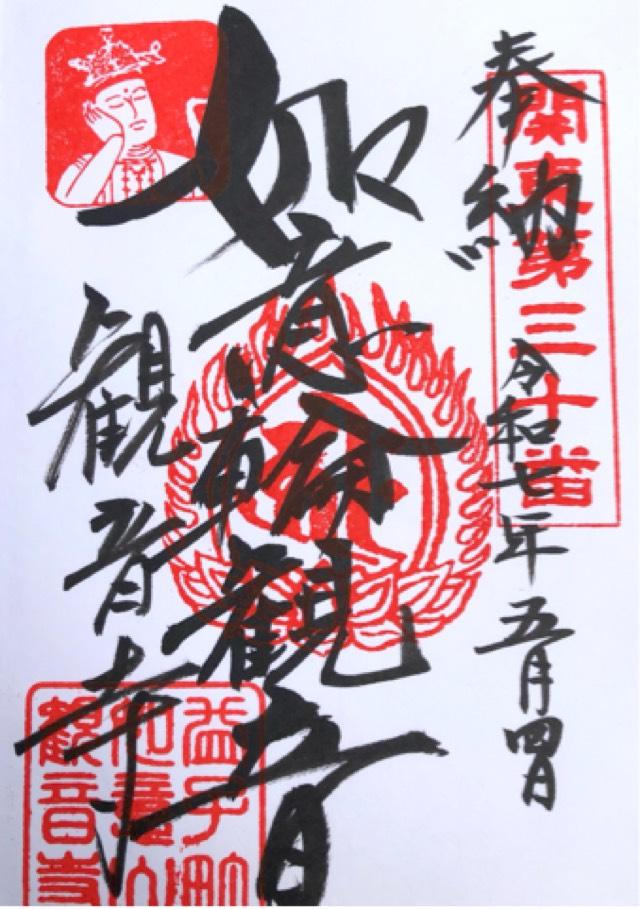 奉納
関東第三十番
令和七年五月四日
如意輪観音
観音寺
益子町
如意山
觀音寺